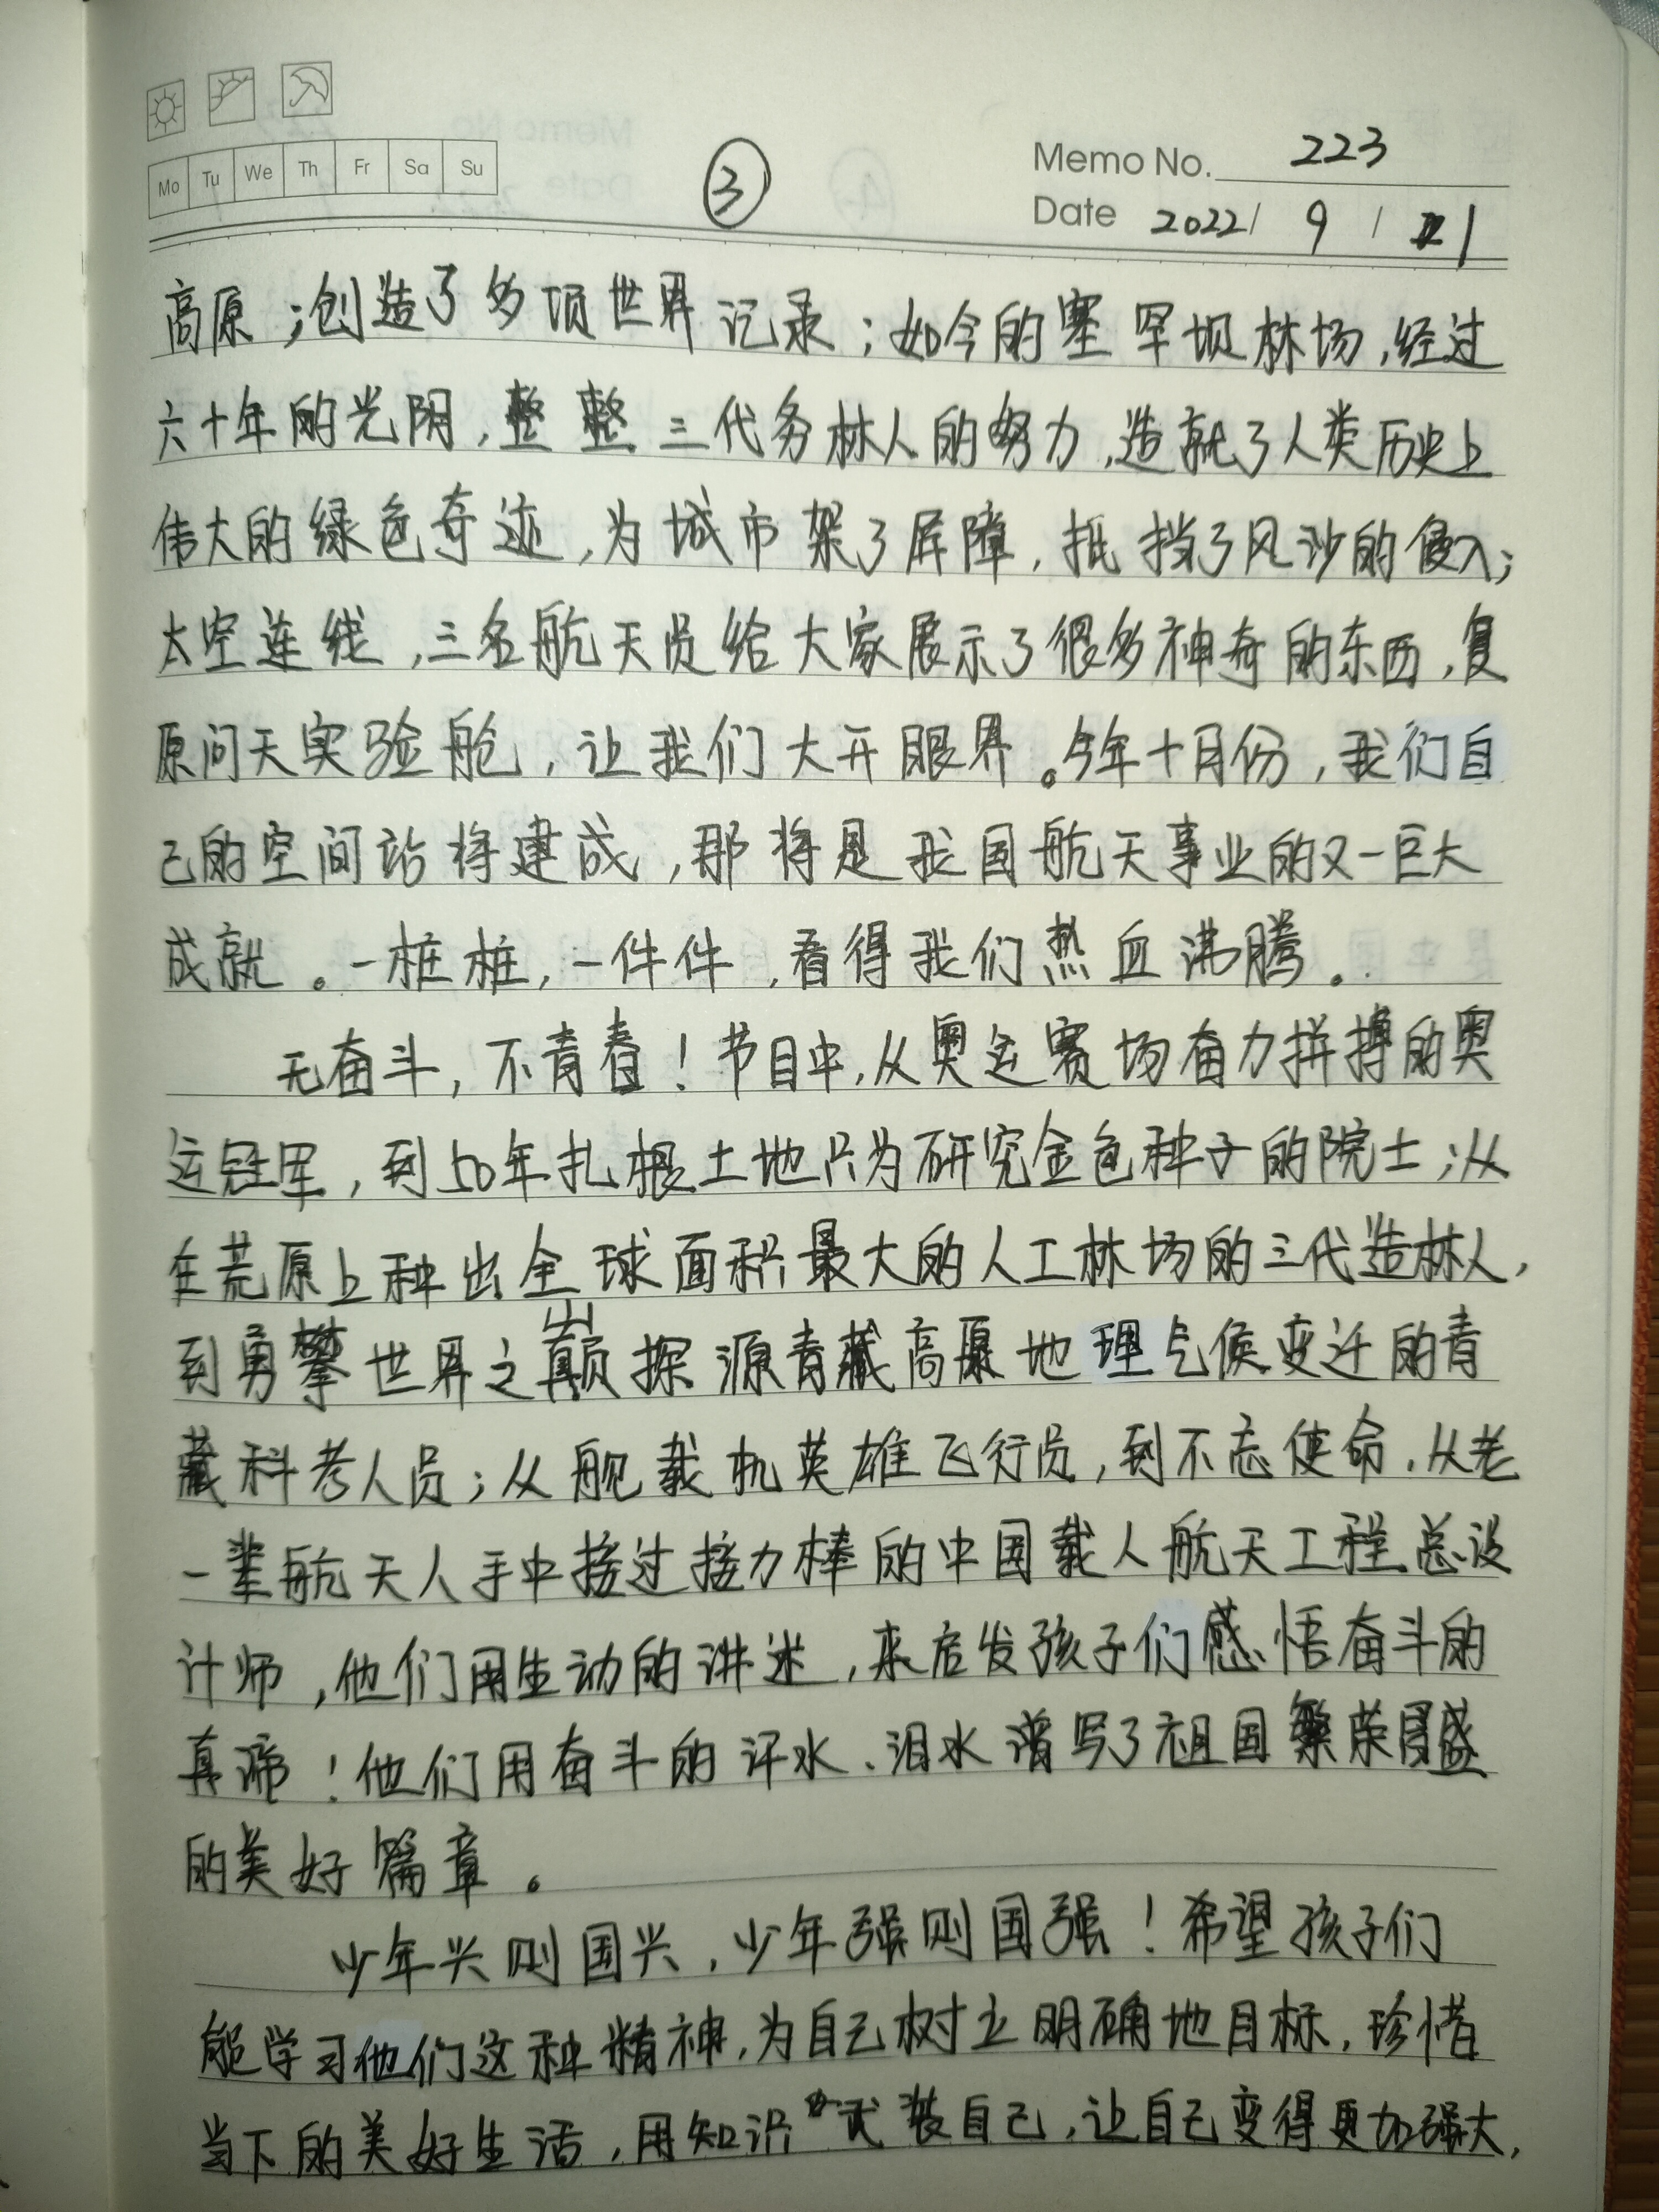 Mo Tu We Th Fr Sa Su
③
Memo No. 223
Date 2022/ 9 / 1
高原；创造了多项世界记录；如今的塞罕坝林场，经过
六十年的光阴，整整三代务林人的努力，造就了人类历史上
伟大的绿色奇迹，为城市架了屏障，抵挡了风沙的侵入；
太空连线，三名航天员给大家展示了很多神奇的东西，复
原问天实验舱，让我们大开眼界。今年十月份，我们自
己的空间站将建成，那将是我国航天事业的又一巨大
成就。一桩桩，一件件，看得我们热血沸腾。
无奋斗，不青春！节目中，从奥运赛场奋力拼搏的奥
运冠军，到50年扎根土地只为研究金色种子的院士；从
在荒原上种出全球面积最大的人工林场的三代造林人，
到勇攀世界之巅探源青藏高原地理气候变迁的青
藏科考人员；从舰载机英雄飞行员，到不忘使命，从老
一辈航天人手中接过接力棒的中国载人航天工程总设
计师，他们用生动的讲述，来启发孩子们感悟奋斗的
真谛！他们用奋斗的汗水、泪水谱写了祖国繁荣昌盛
的美好篇章。
少年兴则国兴，少年强则国强！希望孩子们
能学习他们这种精神，为自己树立明确地目标，珍惜
当下的美好生活，用知识武装自己，让自己变得更加强大，